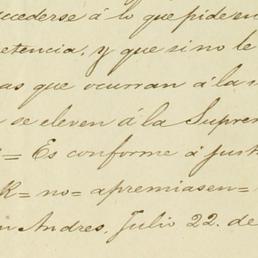 ccederse á lo que pide su
petencia, y que si no le
as que ocurran á la
se eleven á la Suprem
= Es conforme á just
K= no= apremiasen=
n Andres, Julio 22. de